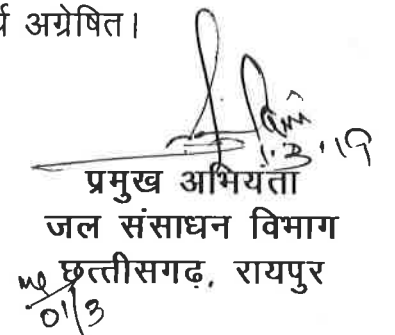 र्य अग्रेषित।
1.3.19
प्रमुख अभियंता
जल संसाधन विभाग
छत्तीसगढ़, रायपुर
01/3